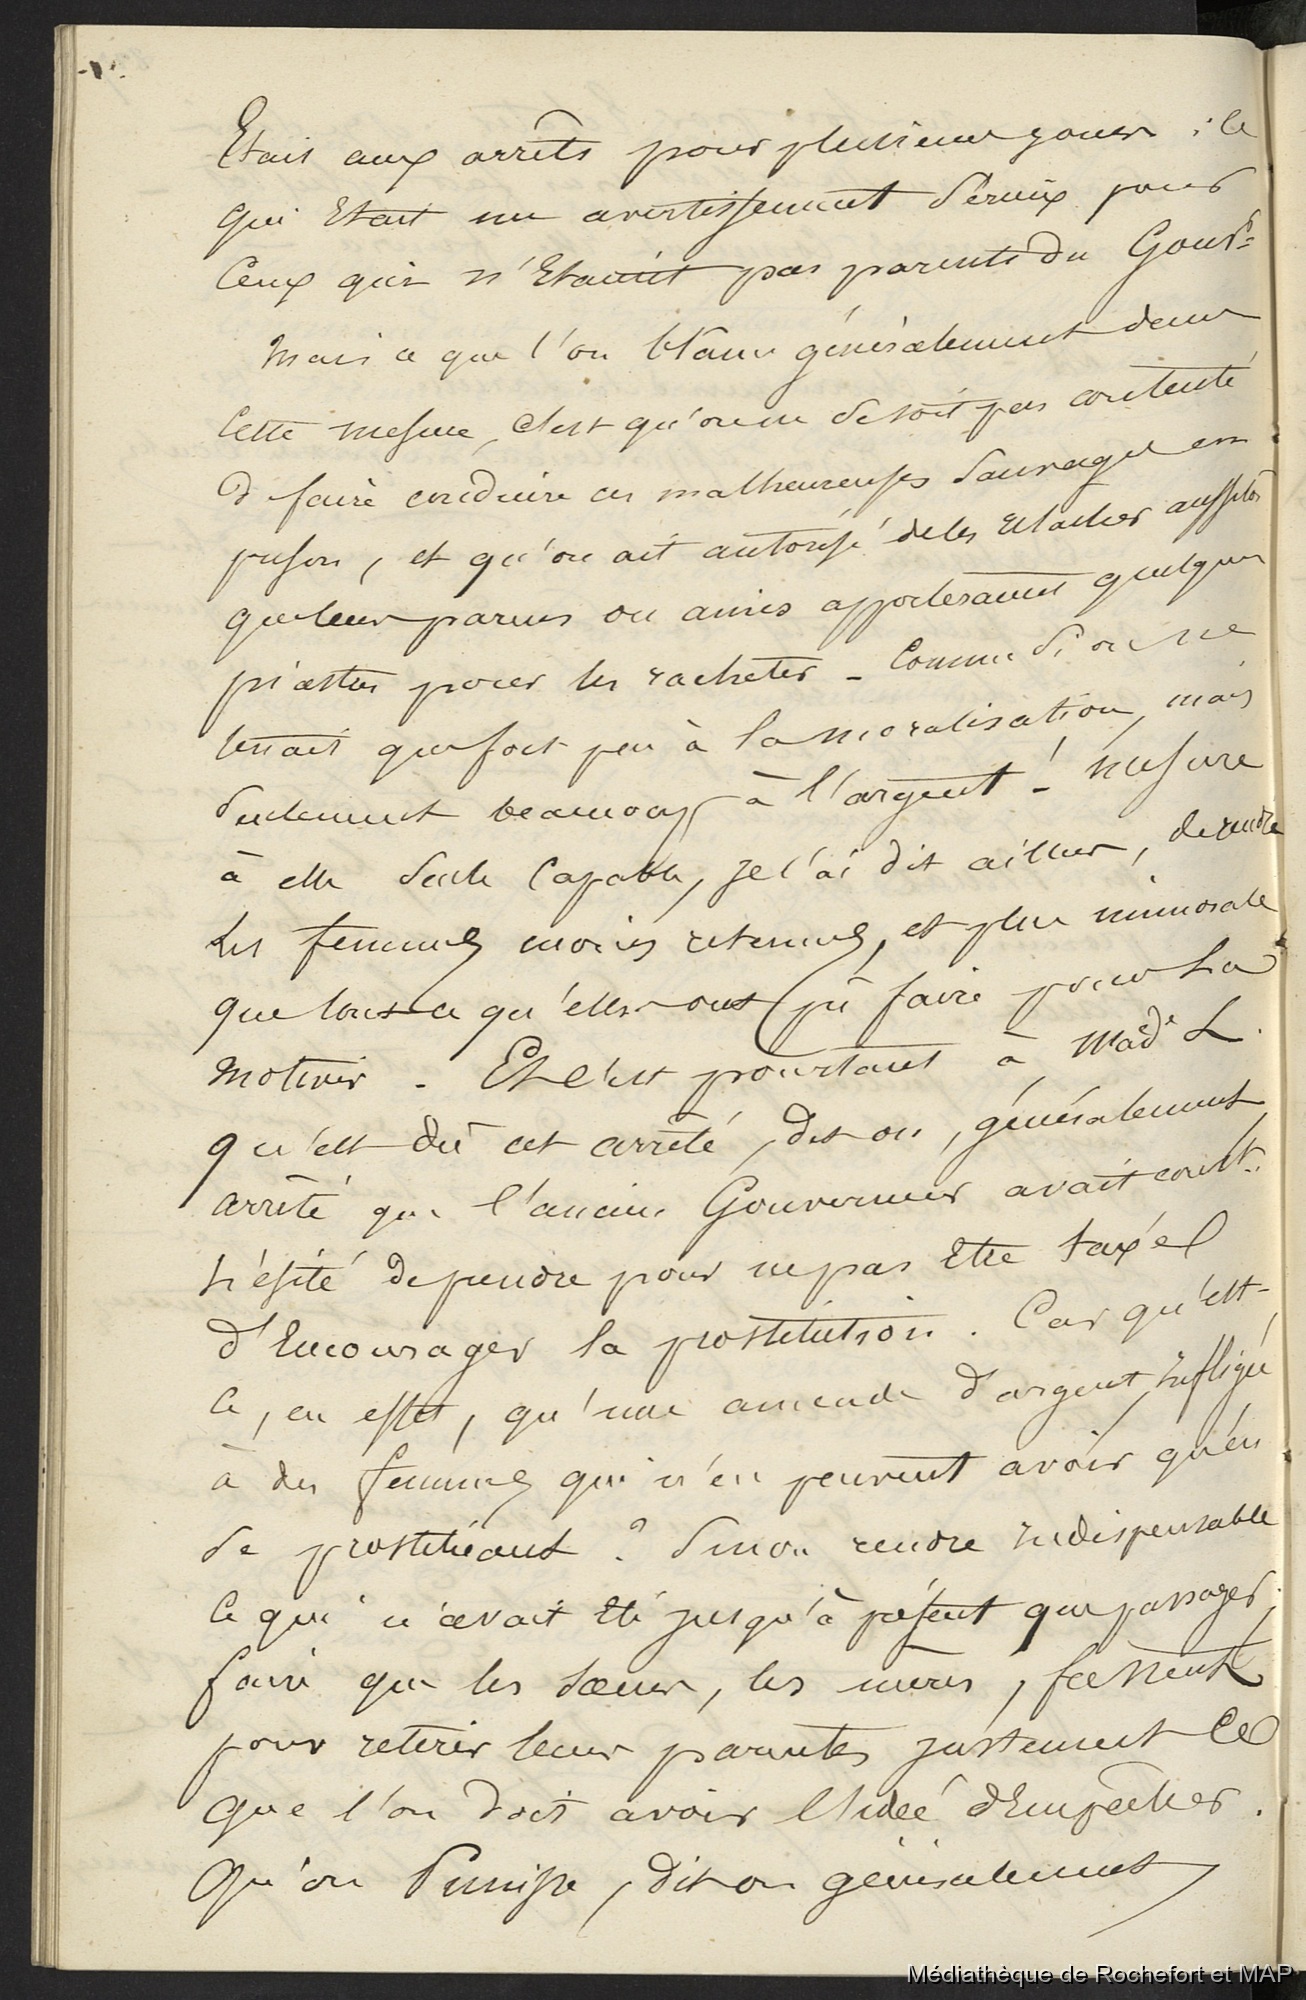 Etait aux arrêts pour plusieurs jours ; ce
qui Etait un avertissement sérieux pour
Ceux qui n'Etaient pas parents du Gouvr.
Mais ce que l'on blâme généralement dans
Cette mesure, c'est qu'on ne se soit pas contenté
de faire conduire ces malheureuses sauvages en
prison, et qu'on ait autorisé de les relacher aussitôt
que leurs parens ou amies apporteraient quelques
piastres pour les racheter - Comme si on ne
tenait que fort peu à la moralisation, mais
seulement beaucoup à l'argent ! - mesure
à elle seule capable, je l'ai dit ailleurs, de rendre
les femmes moins retenues, et plus immorale
que tout ce qu'elles ont pû faire pour la
motiver . Et c'est pourtant à Made L.
qu'est dû cet arrêté, dit on, généralement
arrêté que l'ancien Gouverneur avait constt.
hésité de prendre pour ne pas Etre taxé
d'Encourager la prostitution . Car qu'est-
ce, en effet, qu'une amende d'argent infligée
à des femmes qui n'en peuvent avoir qu'en
se prostituant ? Sinon rendre indispensable
ce qui n'avait Eté jusqu'à présent que passager,
faire que les sœurs, les mères, fassent
pour retirer leurs parentes justement ce
que l'on doit avoir l'idée d'Empêcher .
Qu'on Punisse, dit on généralement
Médiathèque de Rochefort et MAP